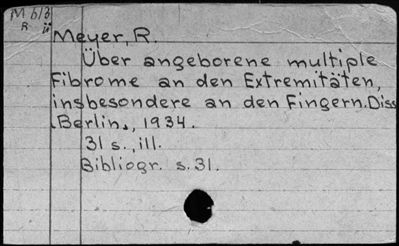 Meyer, R.
Über angeborene multiple
Fibrome an den Extremitäten,
insbesondere an den Fingern. Diss
Berlin., 1934.
31 s., ill.
Bibliogr. s. 31.